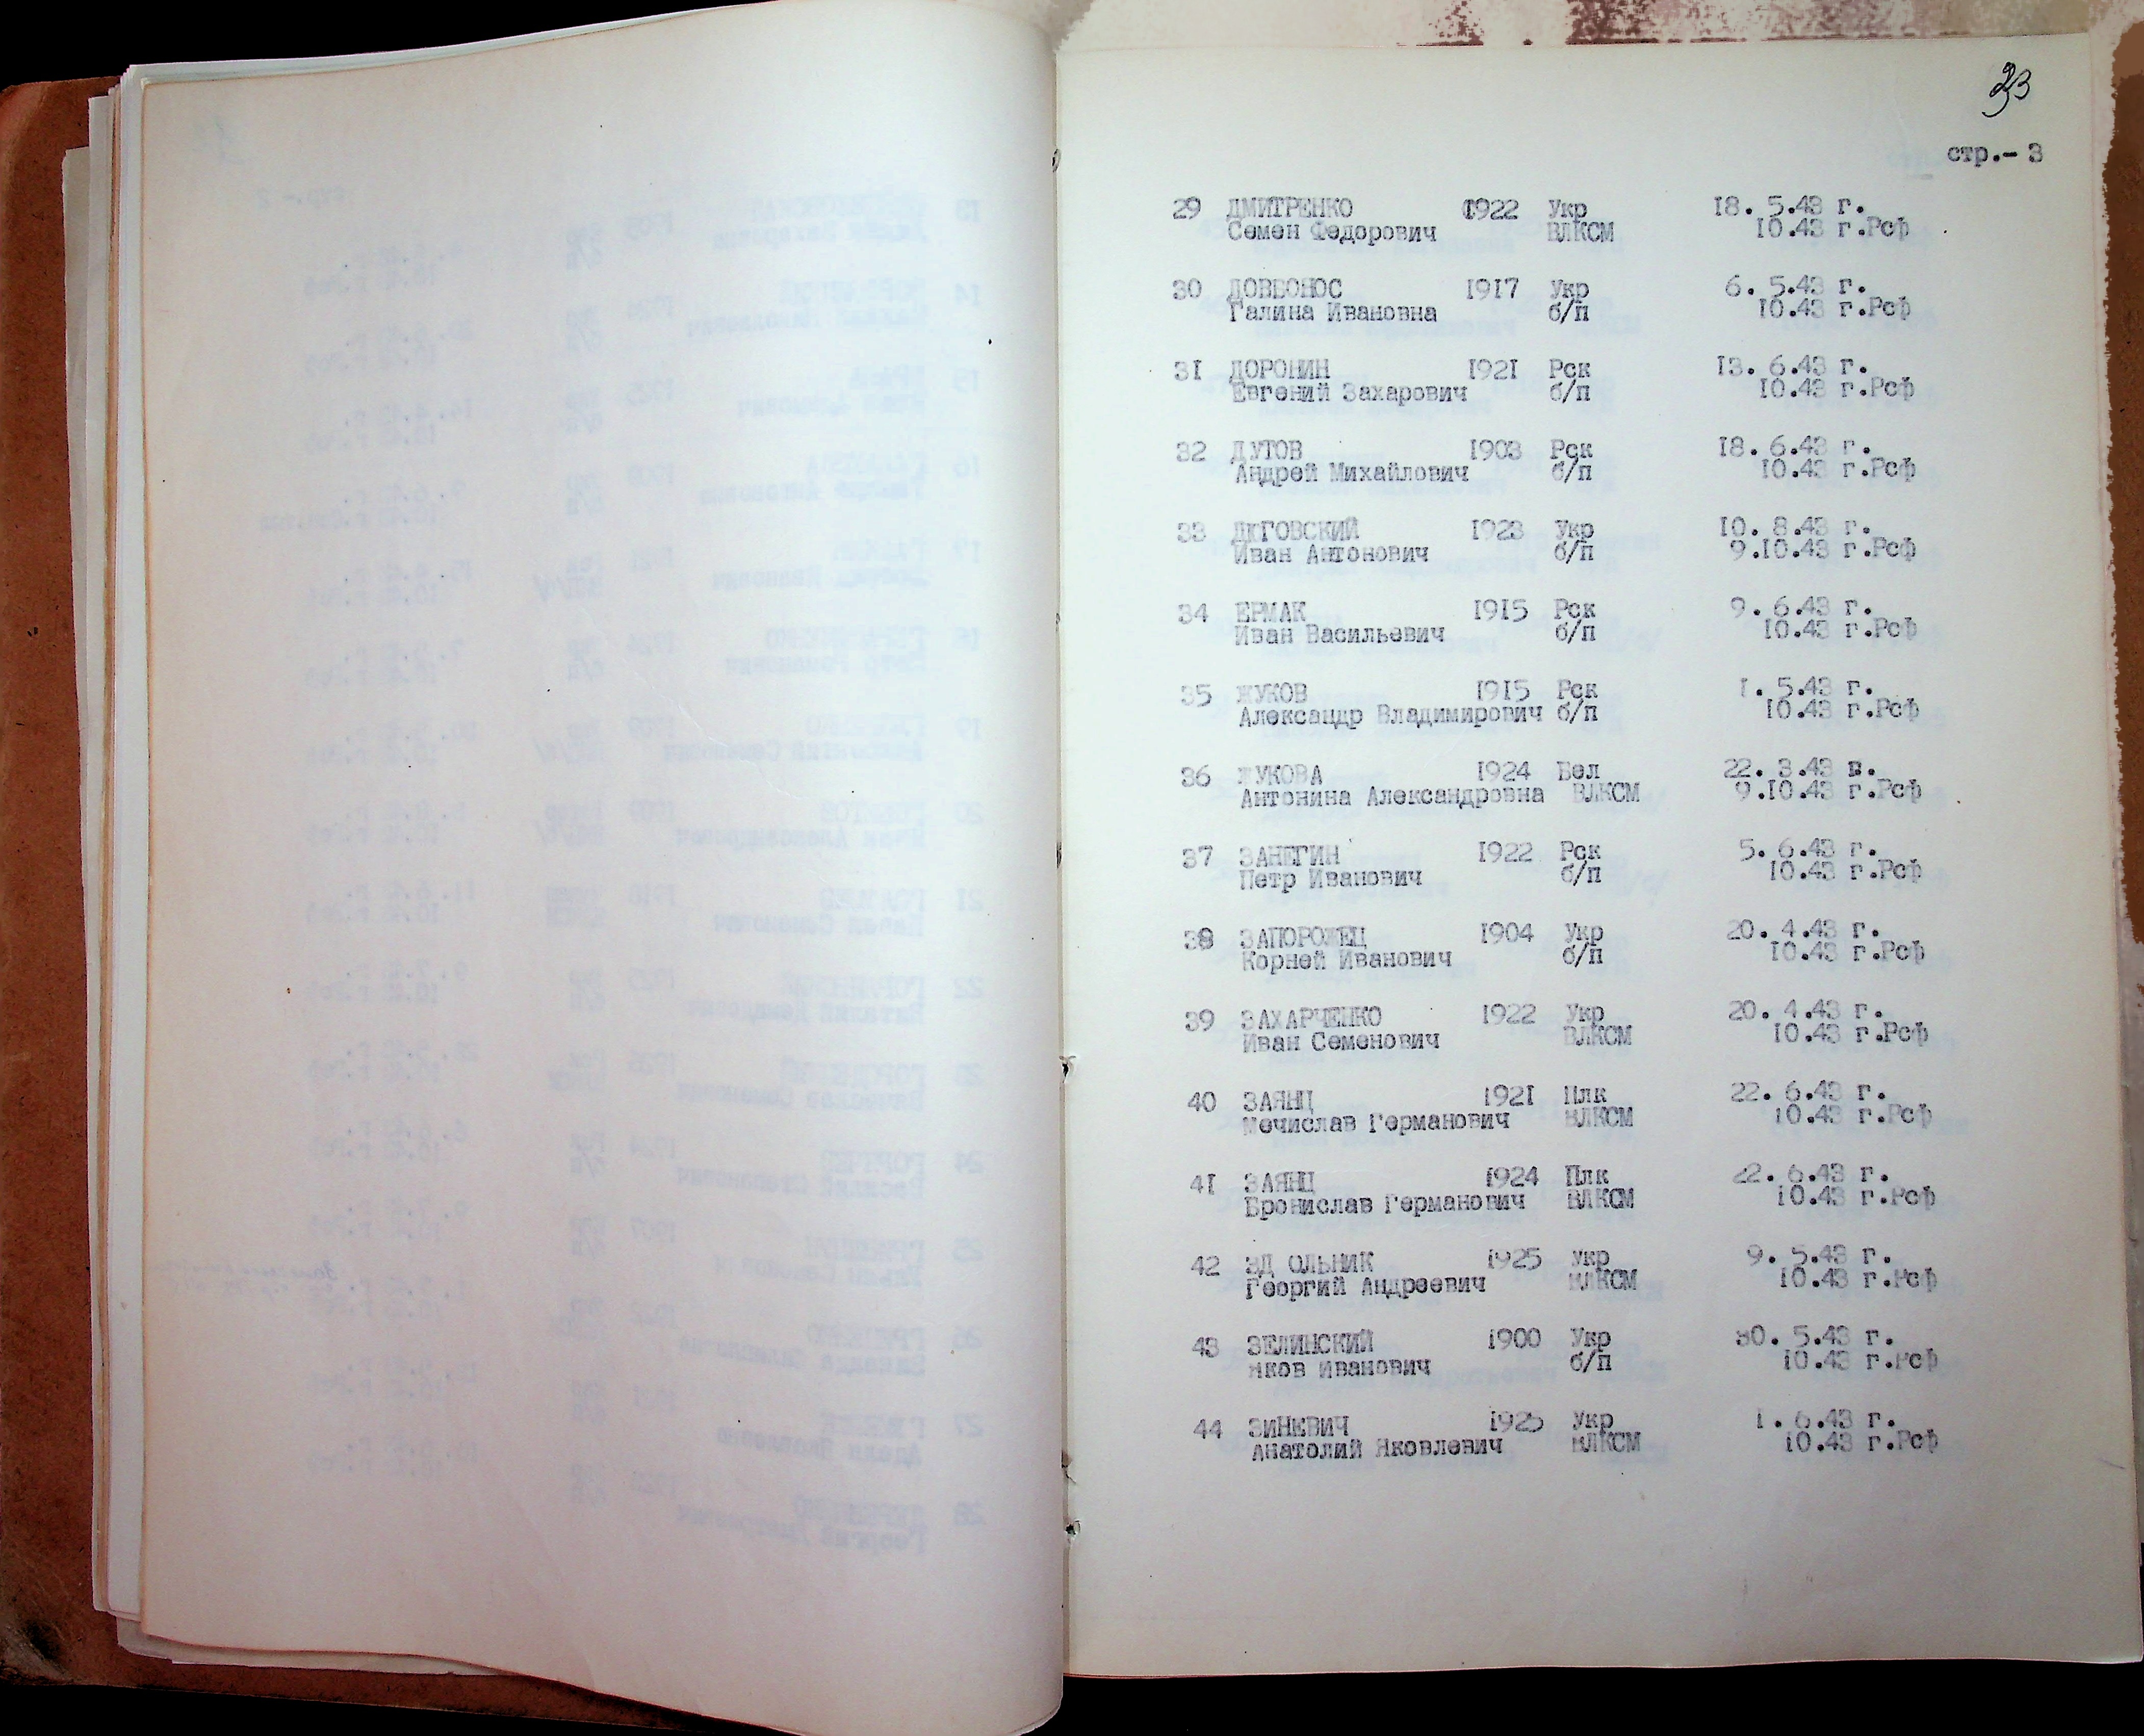 33
стр.- 3
29 ДМИТРЕНКО 1922 Укр 18. 5.43 г.
Семен Федорович ВЛКСМ 10.43 г.Рсф
30 ДОВБОНОС 1917 Укр 6. 5.43 г.
Галина Ивановна б/п 10.43 г.Рсф
31 ДОРОНИН 1921 Рск 13. 6.43 г.
Евгений Захарович б/п 10.43 г.Рсф
32 ДУТОВ 1903 Рск 18. 6.43 г.
Андрей Михайлович б/п 10.43 г.Рсф
33 ДЮГОВСКИЙ 1923 Укр 10. 8.43 г.
Иван Антонович б/п 9.10.43 г.Рсф
34 ЕРМАК 1915 Рск 9. 6.43 г.
Иван Васильевич б/п 10.43 г.Рсф
35 ЖУКОВ 1915 Рск 1. 5.43 г.
Александр Владимирович б/п 10.43 г.Рсф
36 ЖУКОВА 1924 Бел 22. 3.43 г.
Антонина Александровна ВЛКСМ 9.10.43 г.Рсф
37 ЗАНЕГИН 1922 Рск 5. 6.43 г.
Петр Иванович б/п 10.43 г.Рсф
38 ЗАПОРОЖЕЦ 1904 Укр 20. 4.43 г.
Корней Иванович б/п 10.43 г.Рсф
39 ЗАХАРЧЕНКО 1922 Укр 20. 4.43 г.
Иван Семенович ВЛКСМ 10.43 г.Рсф
40 ЗАЯНЦ 1921 Плк 22. 6.43 г.
Мечислав Германович ВЛКСМ 10.43 г.Рсф
41 ЗАЯНЦ 1924 Плк 22. 6.43 г.
Бронислав Германович ВЛКСМ 10.43 г.Рсф
42 ЗД ОЛЬНИК 1925 Укр 9. 5.43 г.
Георгий Андреевич ВЛКСМ 10.43 г.Рсф
43 ЗЕЛИНСКИЙ 1900 Укр 30. 5.43 г.
Яков Иванович б/п 10.43 г.Рсф
44 ЗИНЕВИЧ 1925 Укр 1. 6.43 г.
Анатолий Яковлевич ВЛКСМ 10.43 г.Рсф